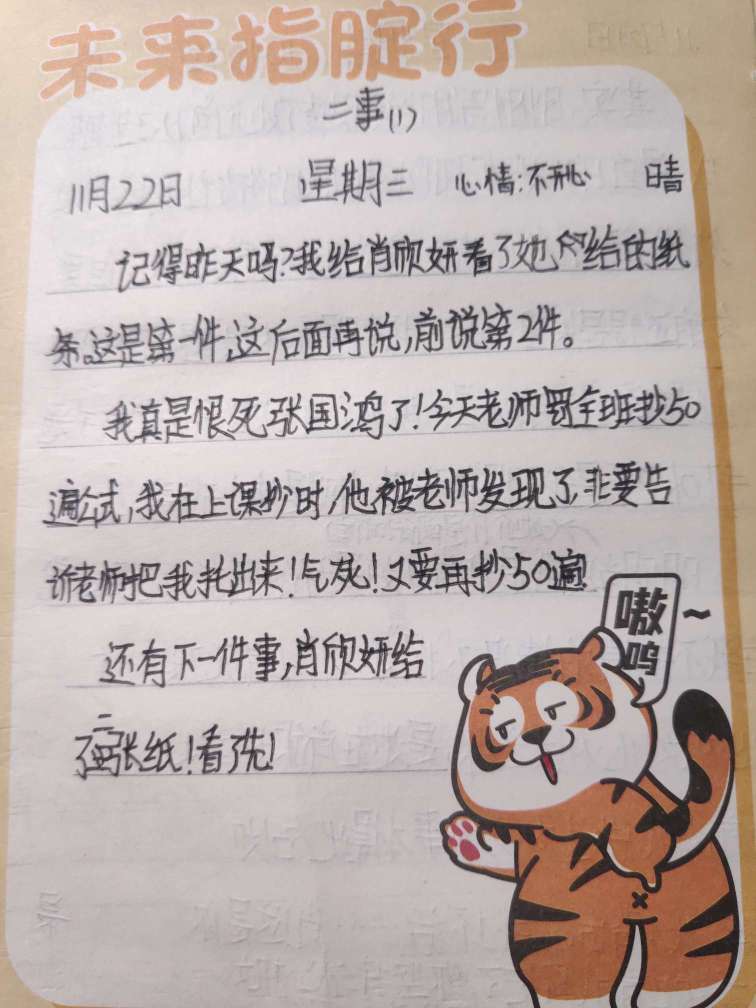 未来指腚行
二事(1)
11月22日 星期三 心情:不开心 晴
记得昨天吗?我给肖欣妍看了她给的纸
条。这是第一件,这后面再说,前说第2件。
我真是恨死张国鸿了!今天老师罚全班抄50
遍公式,我在上课抄时,他被老师发现了,非要告
诉老师把我托出来!气死!又要再抄50遍!
还有下一件事,肖欣妍给
了二张纸!看了先!
嗷
呜
~